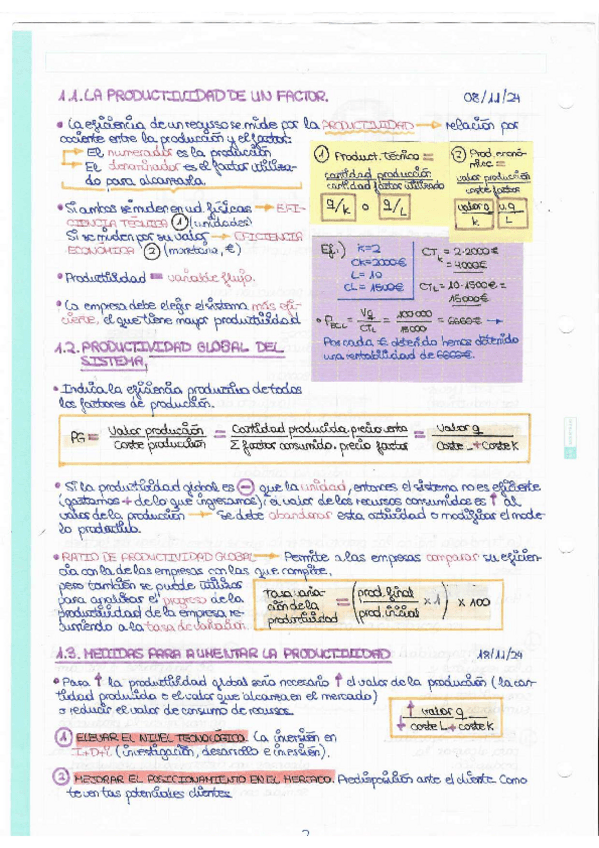 1.1. LA PRODUCTIVIDAD DE UN FACTOR. 08/11/24
• La eficiencia de un recurso se mide por la PRODUCTIVIDAD → relación por
cociente entre la producción y el factor:
→ El numerador es la producción
→ El denominador es el factor utiliza-
do para alcanzarla.
① Product. Técnico =
cantidad producción
cantidad factor utilizado
q/K o q/L
② Prod. econó-
mica =
valor producción
coste factor
valor q
K
v.q
L
• Si ambos se miden en ud físicas → EFI-
CIENCIA TÉCNICA ① (unidades)
Si se miden por su valor → EFICIENCIA
ECONÓMICA ② (monetaria, €)
• Productividad = variable flujo.
• La empresa debe elegir el sistema más efi-
ciente, el que tiene mayor productividad
Ej.) K=2
CK=2000€
L=10
CL=1500€
CTK = 2·2000€
= 4000€
CTL = 10·1500€ =
15000€
• PECL = Vq/CTL = 100000/15000 = 6666€ →
Por cada € obtenido hemos obtenido
una rentabilidad de 6666€.
1.2. PRODUCTIVIDAD GLOBAL DEL
SISTEMA.
• Indica la eficiencia productiva de todos
los factores de producción.
PG = Valor producción / Coste producción = Cantidad producida · precio venta / Σ factor consumido · precio factor = valor q / Coste L + Coste K
• Si la productividad global es ⊖ que la unidad, entonces el sistema no es eficiente
(gastamos + de lo que ingresamos); el valor de los recursos consumidos es ↑ al
valor de la producción → Se debe abandonar esta actividad o modificar el mode-
lo productivo.
• RATIO DE PRODUCTIVIDAD GLOBAL → Permite a las empresas comparar su eficien-
cia con la de las empresas con las que compite,
pero también se puede utilizar
para analizar el progreso de la
productividad de la empresa re-
curriendo a la tasa de variación.
Tasa varia-
ción de la
productividad
= (prod. final / prod. inicial × 1) × 100
1.3. MEDIDAS PARA AUMENTAR LA PRODUCTIVIDAD 18/11/24
• Para ↑ la productividad global será necesario ↑ el valor de la producción (la can-
tidad producida o el valor que alcanza en el mercado)
o reducir el valor de consumo de recursos.
↑ valor q
↓ coste L + coste K
① ELEVAR EL NIVEL TECNOLÓGICO. La inversión en
I+D+I (investigación, desarrollo e inversión).
② MEJORAR EL POSICIONAMIENTO EN EL MERCADO. Predisposición ante el cliente. Como
te ven tus potenciales clientes